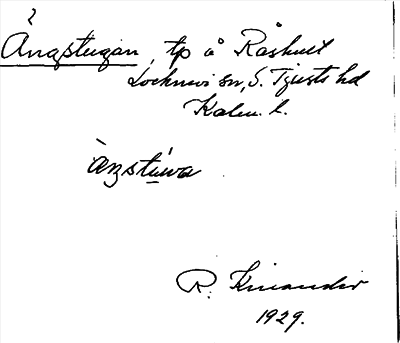 Ängstugan, tp å Råshult
Locknevi sn, S. Tjusts hd
Kalm. l.
ängstuwa
R. Kinander
1929.